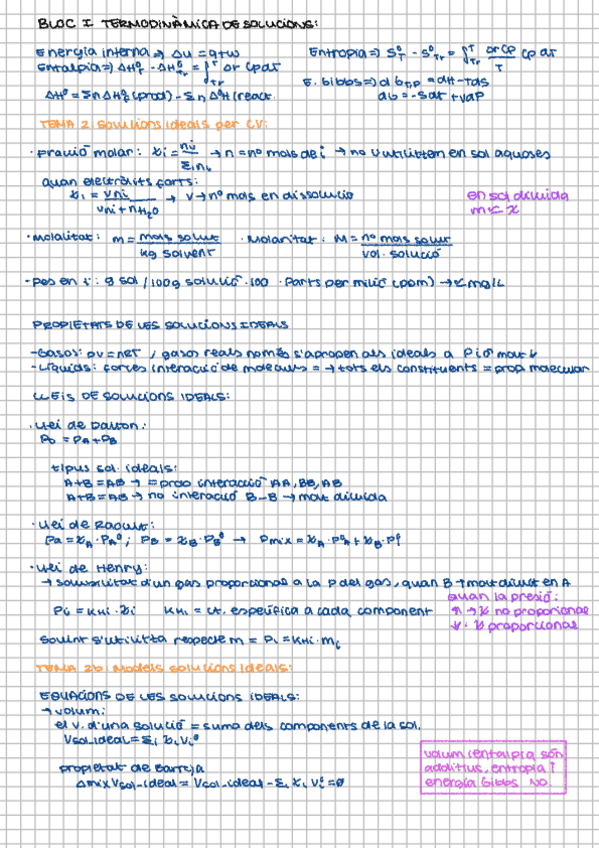 BLOC I TERMODINÀMICA DE SOLUCIONS:
Energía interna ⇒ Δu = q+w
Entropia ⇒ S°T - S°Tr = ∫T Tr ΔrCp/T dT
Entalpia ⇒ ΔH°T - ΔH°Tr = ∫T Tr Δr Cp dT
E. Gibbs ⇒ dGT,P = dH - TdS
dG = -SdT + VdP
ΔH° = Σn ΔH°f (prod) - Σn Δ°H (react.
TEMA 2: Solucions ideals per CV:
· Fracció molar: xi = ni/Σini → n = nº mols de i → no s'utilitzen en sol aquoses
quan electròlits forts:
xi = νni/νni+nH2O → ν → nº mols en dissolució
en sol diluida
m ≃ x
· Molalitat: m = mols solut/kg solvent · Molaritat: M = nº mols solut/vol. solució
- Pes en %: g sol / 100g solució · 100 · Parts per milió (ppm) → ≃ mg/L
PROPIETATS DE LES SOLUCIONS IDEALS
- Gasos: pv = nRT, gasos reals només s'apropen als ideals a P i δ molt ↓
- Líquids: forces interacció de molècules = → tots els constituents = prop molecular
LLEIS DE SOLUCIONS IDEALS:
· Llei de Dalton:
P0 = PA + PB
tipus sol. ideals:
A+B = AB → = prop interacció AA, BB, AB
A+B = AB → no interacció B-B → molt diluida
· Llei de Raoult:
PA = xA · PA° ; PB = xB · PB° → Pmix = xA · P°A + xB · P°
· Llei de Henry:
→ solubilitat d'un gas proporcional a la P del gas, quan B → molt diluit en A
quan la pressió:
Pi = KHi · xi KHi = ct. específica a cada component
↑ → x no proporcional
↓ : x proporcional
Sovint s'utilitza respecte m = Pi = KHi · mi
TEMA 2b: Models solucions ideals:
EQUACIONS DE LES SOLUCIONS IDEALS:
→ volum:
el v. d'una solució = suma dels components de la sol.
Vsol-ideal = Σi xi Vi°
propietat de barreja
ΔmixVsol-ideal = Vsol-ideal - Σi xi Vi° = ∅
volum i entalpia són
additius, entropia i
energía Gibbs NO.